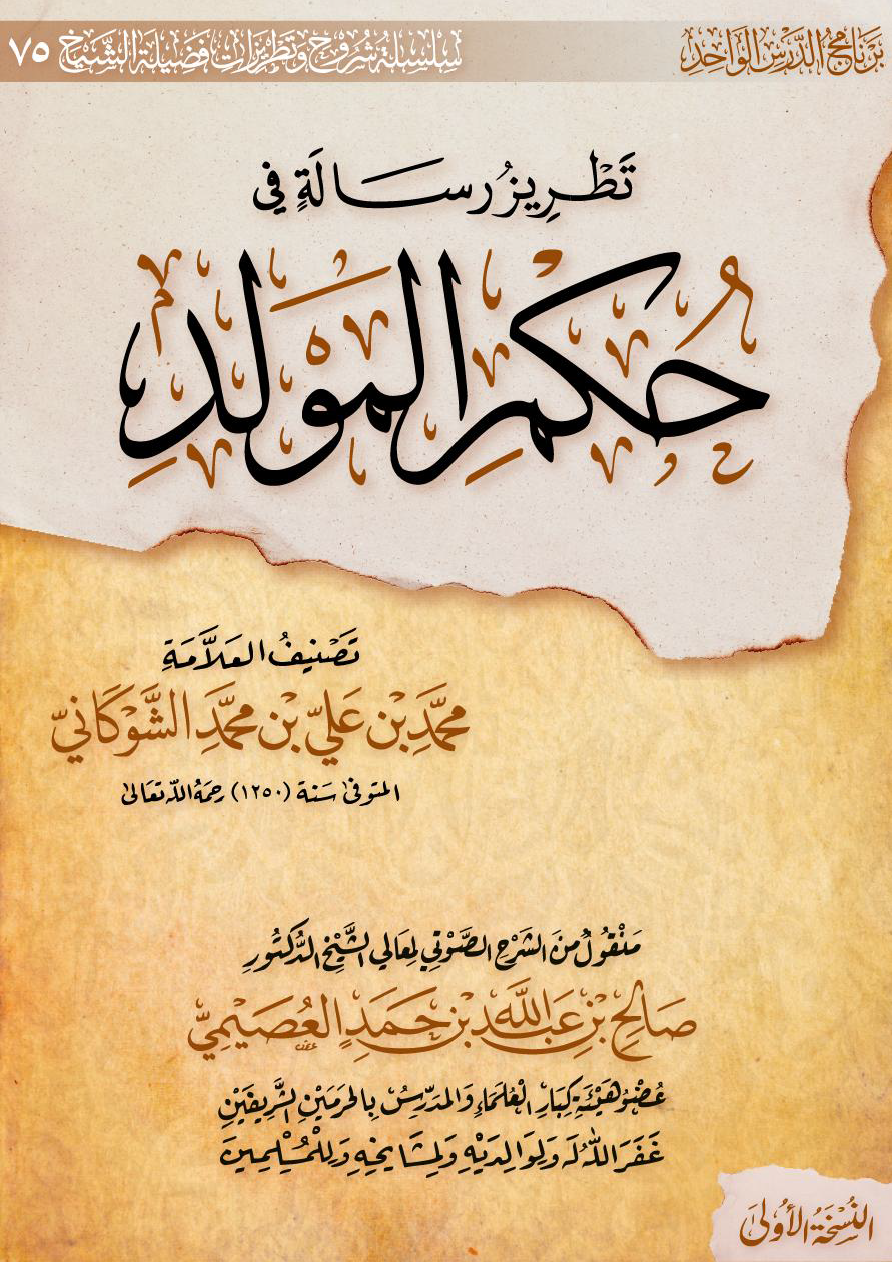 برنامج الدرس الواحد
سلسلة شروح وتطريزات فضيلة الشيخ ٧٥
تَطْرِيزُ رِسَالَةٍ فِي
حُكْمِ المَوْلِدِ
تَصْنِيفُ العَلَّامَةِ
مُحَمَّدِ بْنِ عَلِيِّ بْنِ مُحَمَّدِ الشَّوْكَانِيّ
المتوفى سَنة (١٢٥٠) رحمَهُ اللهُ تعَالى
مَنْقُولٌ مِنَ الشَرْحِ الصَّوْتِي لِمَعَالِي الشَّيْخِ الدُّكْتُورِ
صَالِحِ بْنِ عَبْدِ اللهِ بْنِ حَمَدٍ العُصَيْمِيِّ
عُضْوُ هَيْئَةِ كِبَارِ العُلَمَاءِ وَالمدَرِّسُ بِالحَرَمَيْنِ الشَّرِيفَيْنِ
غَفَرَ اللهُ لَهُ وَلِوَالِدَيْهِ وَلِمَشَايِخِهِ وَلِلْمُسْلِمِينَ
النُسْخَةُ الأُولَى